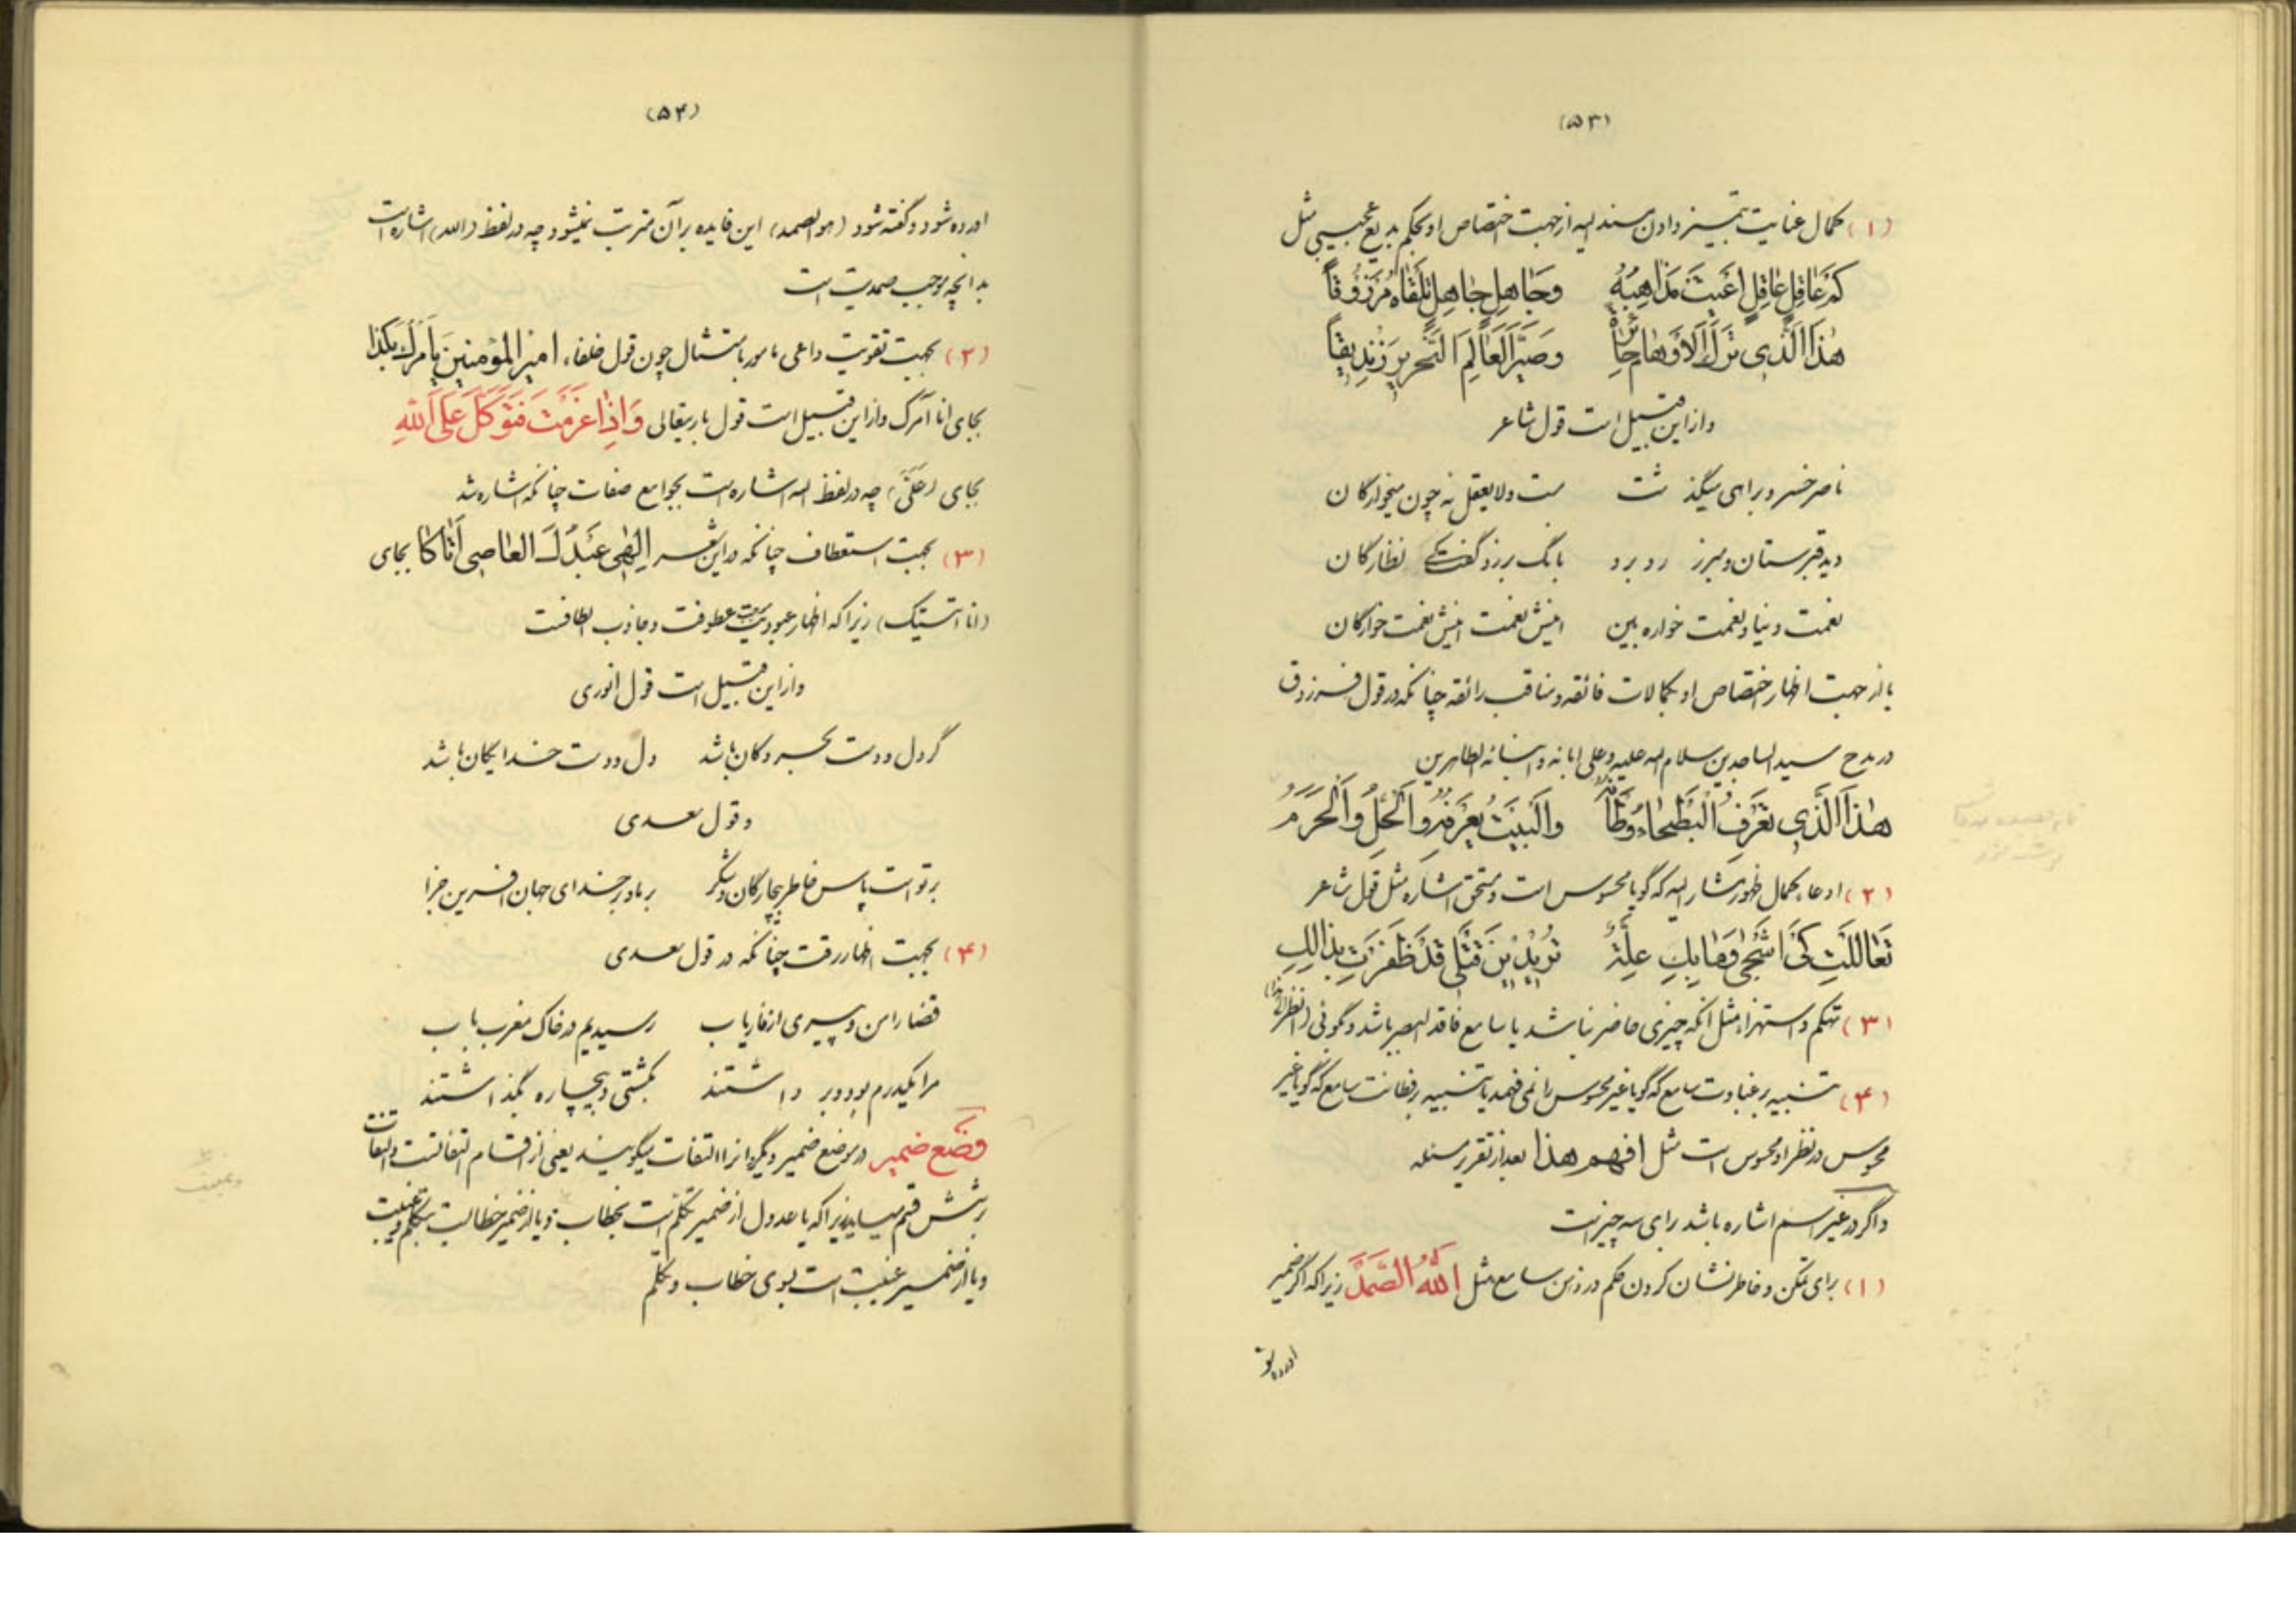 (۵۳)
(۱) کمال عنایت بتمیز دادن مسند الیه از جهت اختصاص او بحکم بدیع عجیبی مثل
كَمْ عَاقِلٍ عَاقِلٍ اَعْيَتْ مَذاهِبُهُ وَجَاهِلٍ جاهِلٍ تَلْقاهُ مَرْزُوقاً
هٰذَا الَّذِى تَرَكَ الْاَوْهامَ حائِرَةً وَصَيَّرَ الْعالِمَ النَّحْرِيرَ زِنْدِيقاً
و از این قبیل است قول شاعر
ناصر خسرو براهی میگذشت مست و لا یعقل نه چون میخوارگان
دید قبرستان و مبرز روبرو بانگ برزد گفت کی نظارگان
نعمت دنیا و نعمت خواره بین اینش نعمت اینش نعمت خوارگان
یا از جهت اظهار اختصاص او بکمالات فائقه و مناقب رائقه چنانکه در قول فرزدق
در مدح سید الساجدین سلام الله علیه و علی ابائه و ابنائه الطاهرین
هٰذَا الَّذِى تَعْرِفُ الْبَطْحاءُ وَطْأَتَهُ وَالْبَيْتُ يَعْرِفُهُ وَالْحِلُّ وَالْحَرَمُ
(۲) ادعاء کمال ظهور مشار الیه که گویا محسوس است و مستحق اشاره مثل قول شاعر
تَعالَلْتِ كَىْ اَشْجى وَمابِكِ عِلَّةٌ تُرِيدِينَ قَتْلى قَدْ ظَفِرْتِ بِذالِكِ
(۳) تهکم و استهزاء مثل انکه چیزی حاضر نباشد یا سامع فاقد البصر باشد و گوئی (انظر الی هذا)
(۴) تنبیه بر غباوت سامع که گویا غیر محسوس را نمی فهمد یا تنبیه بر فطانت سامع که گویا غیر
محسوس در نظر او محسوس است مثل افهم هذا بعد از تقریر مسئله
و اگر در غیر اسم اشاره باشد برای سه چیز است
(۱) برای تمکن و خاطر نشان کردن حکم در ذهن سامع مثل اَللهُ الصَّمَدُ زیرا که اگر ضمیر
اورده شو
(۵۴)
اورده شود و گفته شود (هو الصمد) این فایده بر آن مترتب نمیشود چه در لفظ (الله) اشاره است
بدانچه موجب صمدیت است
(۲) بجهت تقویت داعی مامور بامتثال چون قول خلفاء امير المؤمنين يأمرك بكذا
بجای انا آمرک و از این قبیل است قول باریتعالی وَاِذا عَزَمْتَ فَتَوَكَّلْ عَلَى اللهِ
بجای (عَلَیَّ) چه در لفظ الله اشاره است بجوامع صفات چنانکه اشاره شد
(۳) بجهت استعطاف چنانکه در این شعر اِلهى عَبْدُكَ العاصى اَتاكا بجای
(انا اتیتک) زیرا که اظهار عبودیت عطوفت و جاذب الطافست
و از این قبیل است قول انوری
گر دل و دست بحر و کان باشد دل و دست خدایگان باشد
و قول سعدی
بر تو است پاس خاطر بیچارگان و شکر بر ما و بر خدای جهان افرین جزا
(۴) بجهت اظهار رقت چنانکه در قول سعدی
قضا را من و پیری از فاریاب رسیدیم در خاک مغرب باب
مرا یکدرم بود و بر داشتند بکشتی و بیچاره بگذاشتند
وَضع ضمیر در موضع ضمیر دیگر و انرا التفات میگویند یعنی از اقسام التفاتست و التفات
بر شش قسم میباید زیرا که یا عدول از ضمیر تکلم است بخطاب و یا از ضمیر خطابست بتکلم و غیبت
و یا از ضمیر غیبت است بسوی خطاب و تکلم